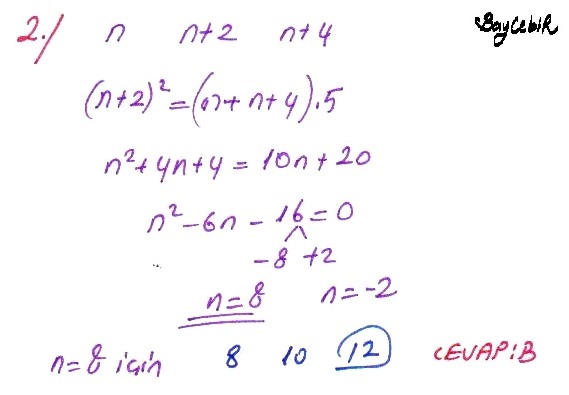 2./ n n+2 n+4 BayCebiR
(n+2)²=(n+n+4).5
n²+4n+4=10n+20
n²-6n-16=0
-8 +2
n=8 n=-2
n=8 için 8 10 12 CEVAP:B